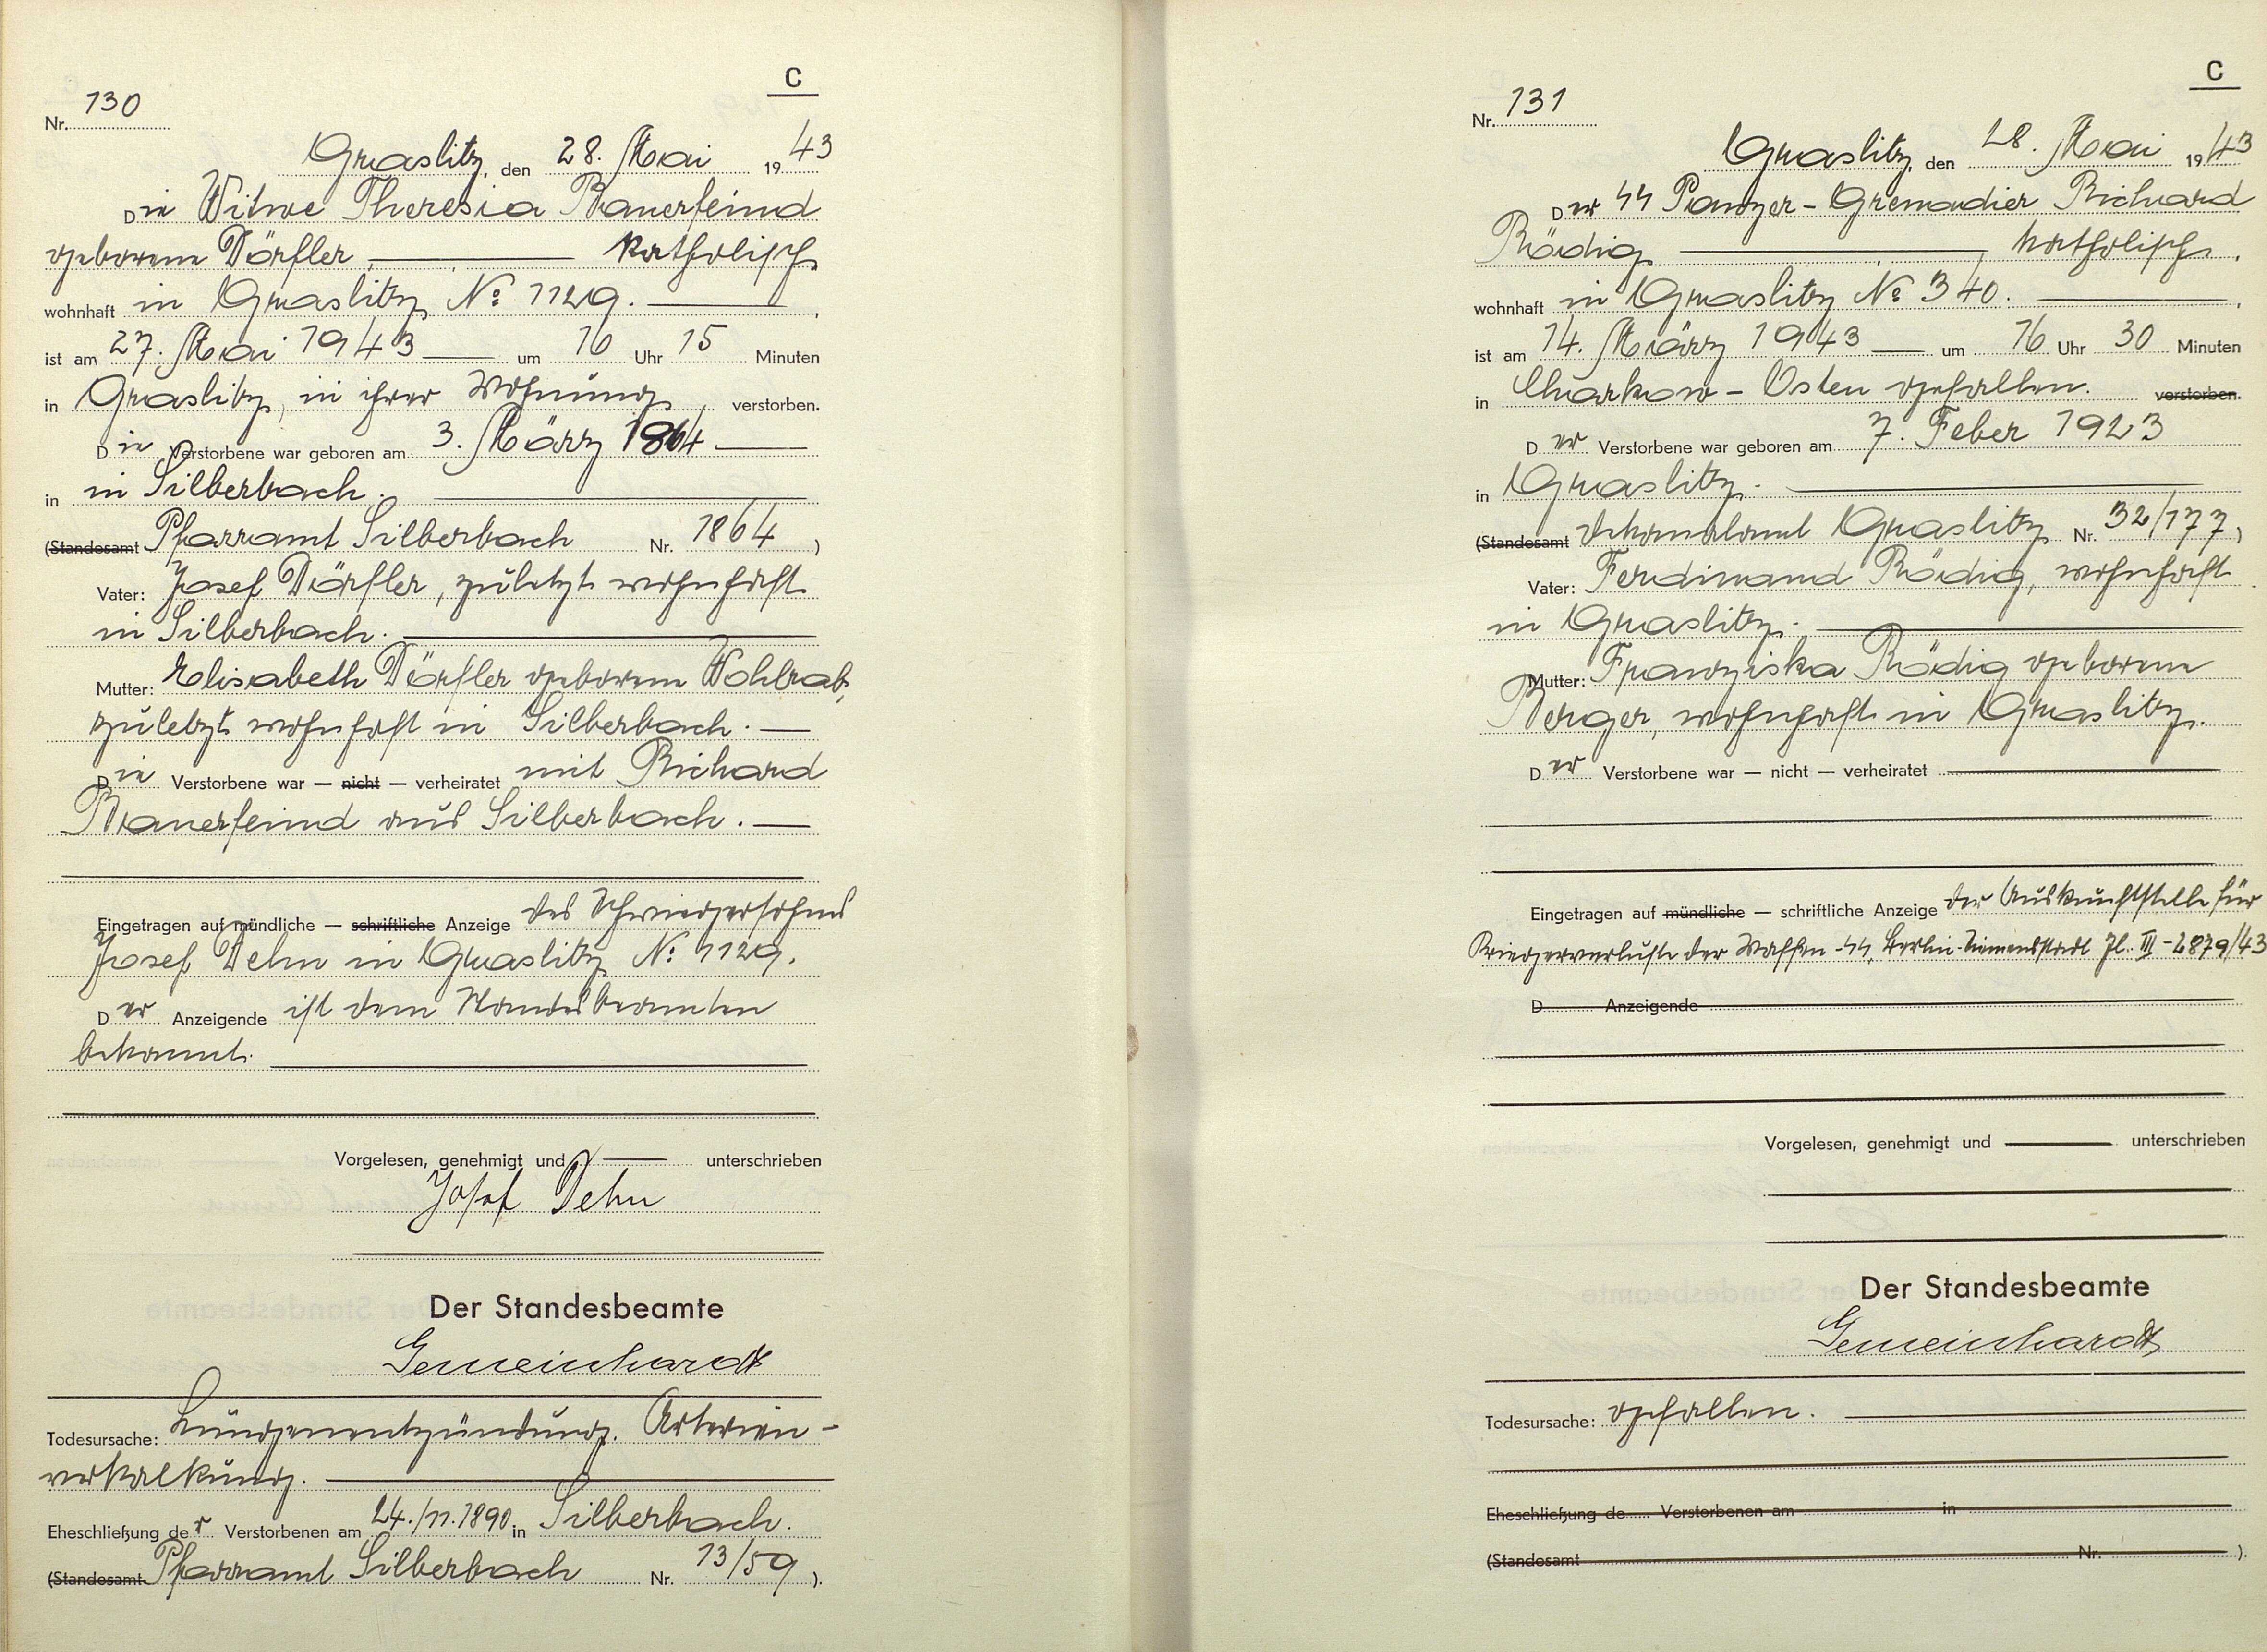 C
Nr. 130
Graslitz, den 28. Mai 1943
Die Witwe Theresia Bauerfeind
geborene Dörfler, katholisch
wohnhaft in Graslitz № 1129.
ist am 27. Mai 1943 um 16 Uhr 15 Minuten
in Graslitz, in ihrer Wohnung verstorben.
Die Verstorbene war geboren am 3. März 1864
in in Silberbach.
(Standesamt Pfarramt Silberbach Nr. 1864)
Vater: Josef Dörfler, zuletzt wohnhaft
in Silberbach.
Mutter: Elisabeth Dörfler geborene Wohlrab,
zuletzt wohnhaft in Silberbach.
Die Verstorbene war — nicht — verheiratet mit Richard
Bauerfeind aus Silberbach.
Eingetragen auf mündliche — schriftliche Anzeige des Schwiegersohnes
Josef Dehn in Graslitz № 1129.
Der Anzeigende ist dem Standesbeamten
bekannt.
Vorgelesen, genehmigt und unterschrieben
Josef Dehn
Der Standesbeamte
Gemeinhardt
Todesursache: Lungenentzündung. Arterien-
verkalkung.
Eheschließung der Verstorbenen am 24./11.1890 in Silberbach.
(Standesamt Pfarramt Silberbach Nr. 13/59).
C
Nr. 131
Graslitz, den 28. Mai 1943
Der ϟϟ Panzer-Grenadier Richard
Rödig katholisch,
wohnhaft in Graslitz № 340.
ist am 14. März 1943 um 16 Uhr 30 Minuten
in Charkow-Osten gefallen. verstorben.
Der Verstorbene war geboren am 7. Feber 1923
in Graslitz.
(Standesamt Dekanalamt Graslitz Nr. 32/177)
Vater: Ferdinand Rödig, wohnhaft
in Graslitz.
Mutter: Franziska Rödig geborene
Berger, wohnhaft in Graslitz.
Der Verstorbene war — nicht — verheiratet
Eingetragen auf mündliche — schriftliche Anzeige der Auskunftstelle für
Kriegerverluste der Waffen-ϟϟ, Berlin-Siemensstadt Zl. III-2879/43
D Anzeigende
Vorgelesen, genehmigt und unterschrieben
Der Standesbeamte
Gemeinhardt
Todesursache: gefallen.
Eheschließung de Verstorbenen am in
(Standesamt Nr. ).